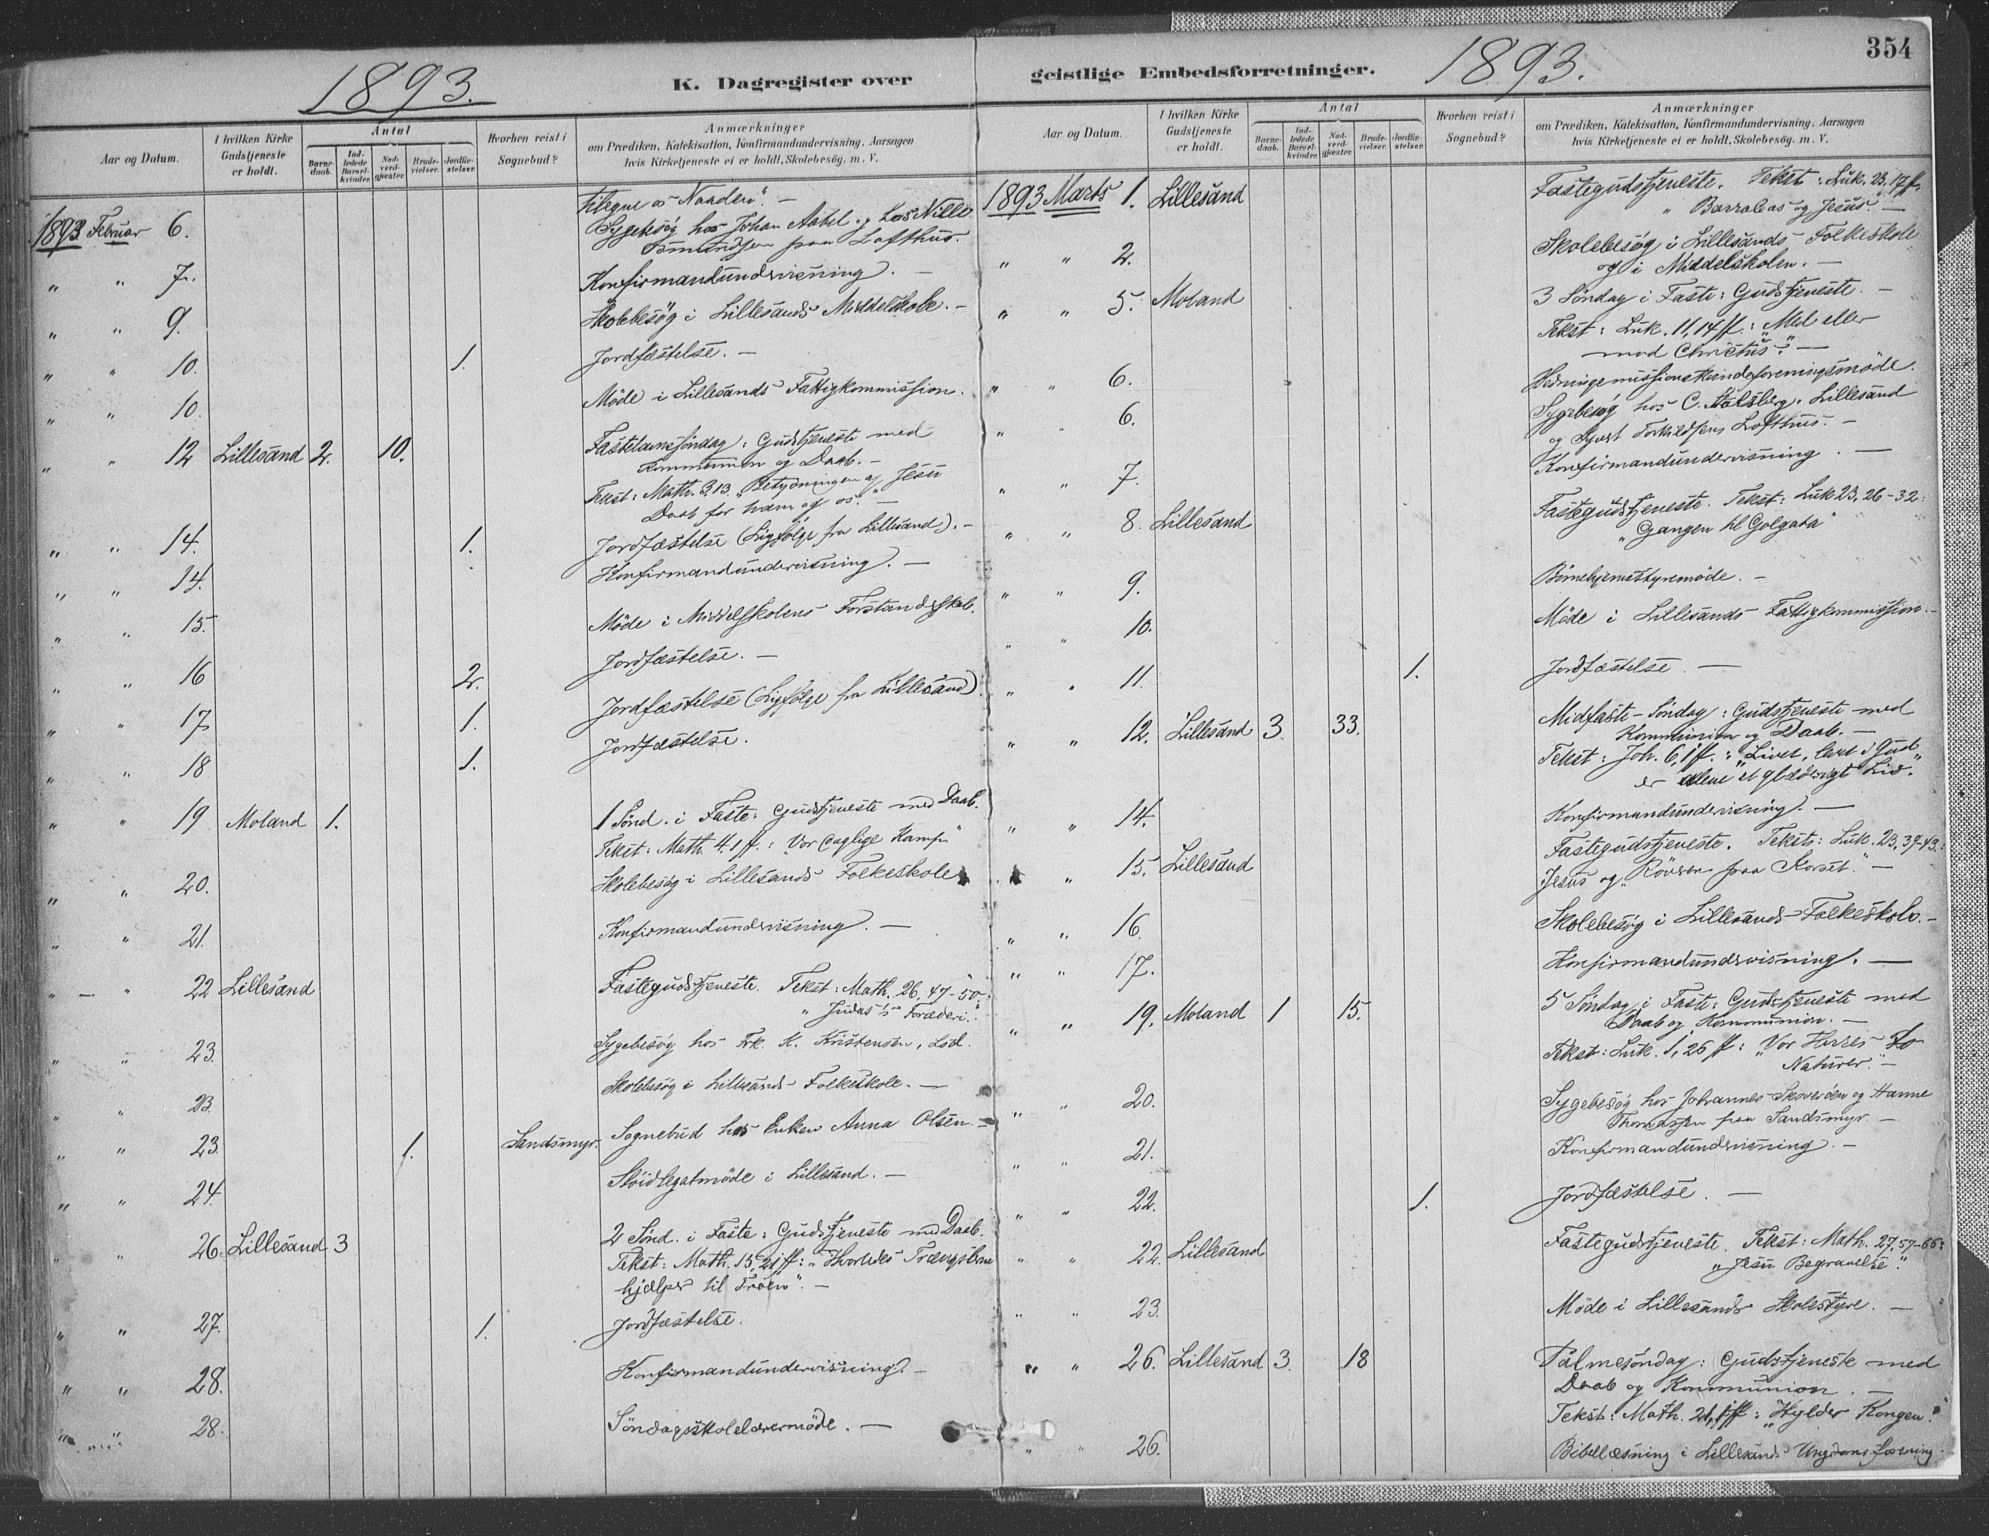 354
1893.
K. Dagregister over
Aar og Datum.
I hvilken Kirke Gudstjeneste er holdt.
Antal
Barne-daab.
Ind-ledede Barsel-kvinder.
Nad-verd-gjester.
Brude-vielser.
Jordfæ-stelser.
Hvorhen reist i Sognebud?
Anmærkninger
om Prædiken, Katekisation, Konfirmandundervisning, Aarsagen
hvis Kirketjeneste ei er holdt, Skolebesøg. m. V.
Naaden". —
1893 Februar 6. Sygebesøg hos Johan Aabel og hos Nille
paa Lofthus.
" " 7. Konfirmandundervisning. —
" " 9. Skolebesøg i Lillesands Middelskole. —
" " 10. 1. Jordfæstelse. —
" " 10. Møde i Lillesands Fattigkommission.
" " 12 Lillesand 2. 10. Fastelavnssøndag: Gudstjeneste med
Kommunion og Daab. —
Tekst: Math. 3,13 "Betydningen af Jesu
Daab for ham og os". —
" " 14. 1. Jordfæstelse (Ligfølge fra Lillesand). —
" " 14. Konfirmandundervisning. —
" " 15. Møde i Middelskolens Forstanderskab.
" " 16 2. Jordfæstelse. —
" " 17 1. Jordfæstelse (Ligfølge fra Lillesand).
" " 18 1. Jordfæstelse.
" " 19 Moland 1. 1 Sønd. i Faste: Gudstjeneste med Daab.
Tekst: Math. 4.1 ff.: "Vor daglige Kamp"
" " 20. Skolebesøg i Lillesands Folkeskole
" " 21. Konfirmandundervisning. —
" — " 22 Lillesand Fastegudstjeneste. Tekst: Math. 26, 47-50:
"Judas's Forræderi".
" " 23. Sygebesøg hos Frk. K. Kristensen, Lsd.
" " 23. Skolebesøg i Lillesands Folkeskole. —
" " 23. 1. Sandsmyr. Sognebud hos Enken Anna Olsen. —
" " 24. Sløidlegatmøde i Lillesand. —
" " 26. Lillesand 3 2 Sønd. i Faste: Gudstjeneste med Daab.
Tekst: Math. 15, 21 ff: "Hvorledes Trængslerne
hjælper til Troen". —
" " 27. 1. Jordfæstelse.
" " 28. Konfirmandundervisning. —
" " 28. Søndagsskolelærermøde. —
geistlige Embedsforretninger.
1893.
Aar og Datum.
I hvilken Kirke Gudstjeneste er holdt.
Antal
Barne-daab.
Ind-ledede Barsel-kvinder.
Nad-verd-gjester.
Brude-vielser.
Jordfæ-stelser.
Hvorhen reist i Sognebud?
Anmærkninger
om Prædiken, Katekisation, Konfirmandundervisning, Aarsagen
hvis Kirketjeneste ei er holdt, Skolebesøg. m. V.
1893 Marts 1. Lillesand Fastegudstjeneste. Tekst: Luk. 23, 17 ff.
"Barrabas og Jesus". —
" " 2. Skolebesøg i Lillesands Folkeskole
og i Middelskolen. —
" " 5. Moland 3 Søndag i Faste: Gudstjeneste. —
Tekst: Luk. 11, 14 ff.: "Med eller
mod Christus?" —
" " 6. Hedningemissionskvindeforeningsmøde.
" " 6. Sygebesøg hos C. Lillesand
og Syvert Torkildsens Lofthus. —
" " 7. Konfirmandundervisning. —
" " 8. Lillesand Fastegudstjeneste. Tekst: Luk 23, 26-32:
"Gangen til Golgata"
" " 9. Børnehjemsstyremøde. —
" " 10. Møde i Lillesands Fattigkommission. —
" " 11. 1. Jordfæstelse. —
" " 12. Lillesand 3. 33. Midfaste-Søndag: Gudstjeneste med
Kommunion og Daab. —
Tekst: Joh. 6, 1 ff.: "Livet, levet i Gud"
er alene et glædesrigt Liv.
" " 14. Konfirmandundervisning. —
" 15. Lillesand Fastegudstjeneste. Tekst: Luk. 23, 39-43:
Jesus og "Røveren paa Korset". —
" " 16. Skolebesøg i Lillesands Folkeskole. —
" " 17. Konfirmandundervisning. —
" " 19. Moland 1 15. 5 Søndag i Faste: Gudstjeneste med
Daab og Kommunion. —
Tekst: Luk. 1, 26 ff: "Vor Herres to
Naturer". —
" " 20. Sygebesøg hos Johannes og Hanne
paa Sandsmyr. —
" " 21. Konfirmandundervisning. —
" " 22. 1. Jordfæstelse. —
" " 22. Lillesand Fastegudstjeneste. Tekst: Math. 27, 57-66:
"Jesu Begravelse".
" " 23. Møde i Lillesands Skolestyre. —
" " 26. Lillesand 3. 18 Palmesøndag: Gudstjeneste med
Daab og Kommunion. —
Tekst: Math. 21, 1 ff: "Hylder Kongen!"
" " 26. Bibellæsning i Lillesands Ungdomsforening.